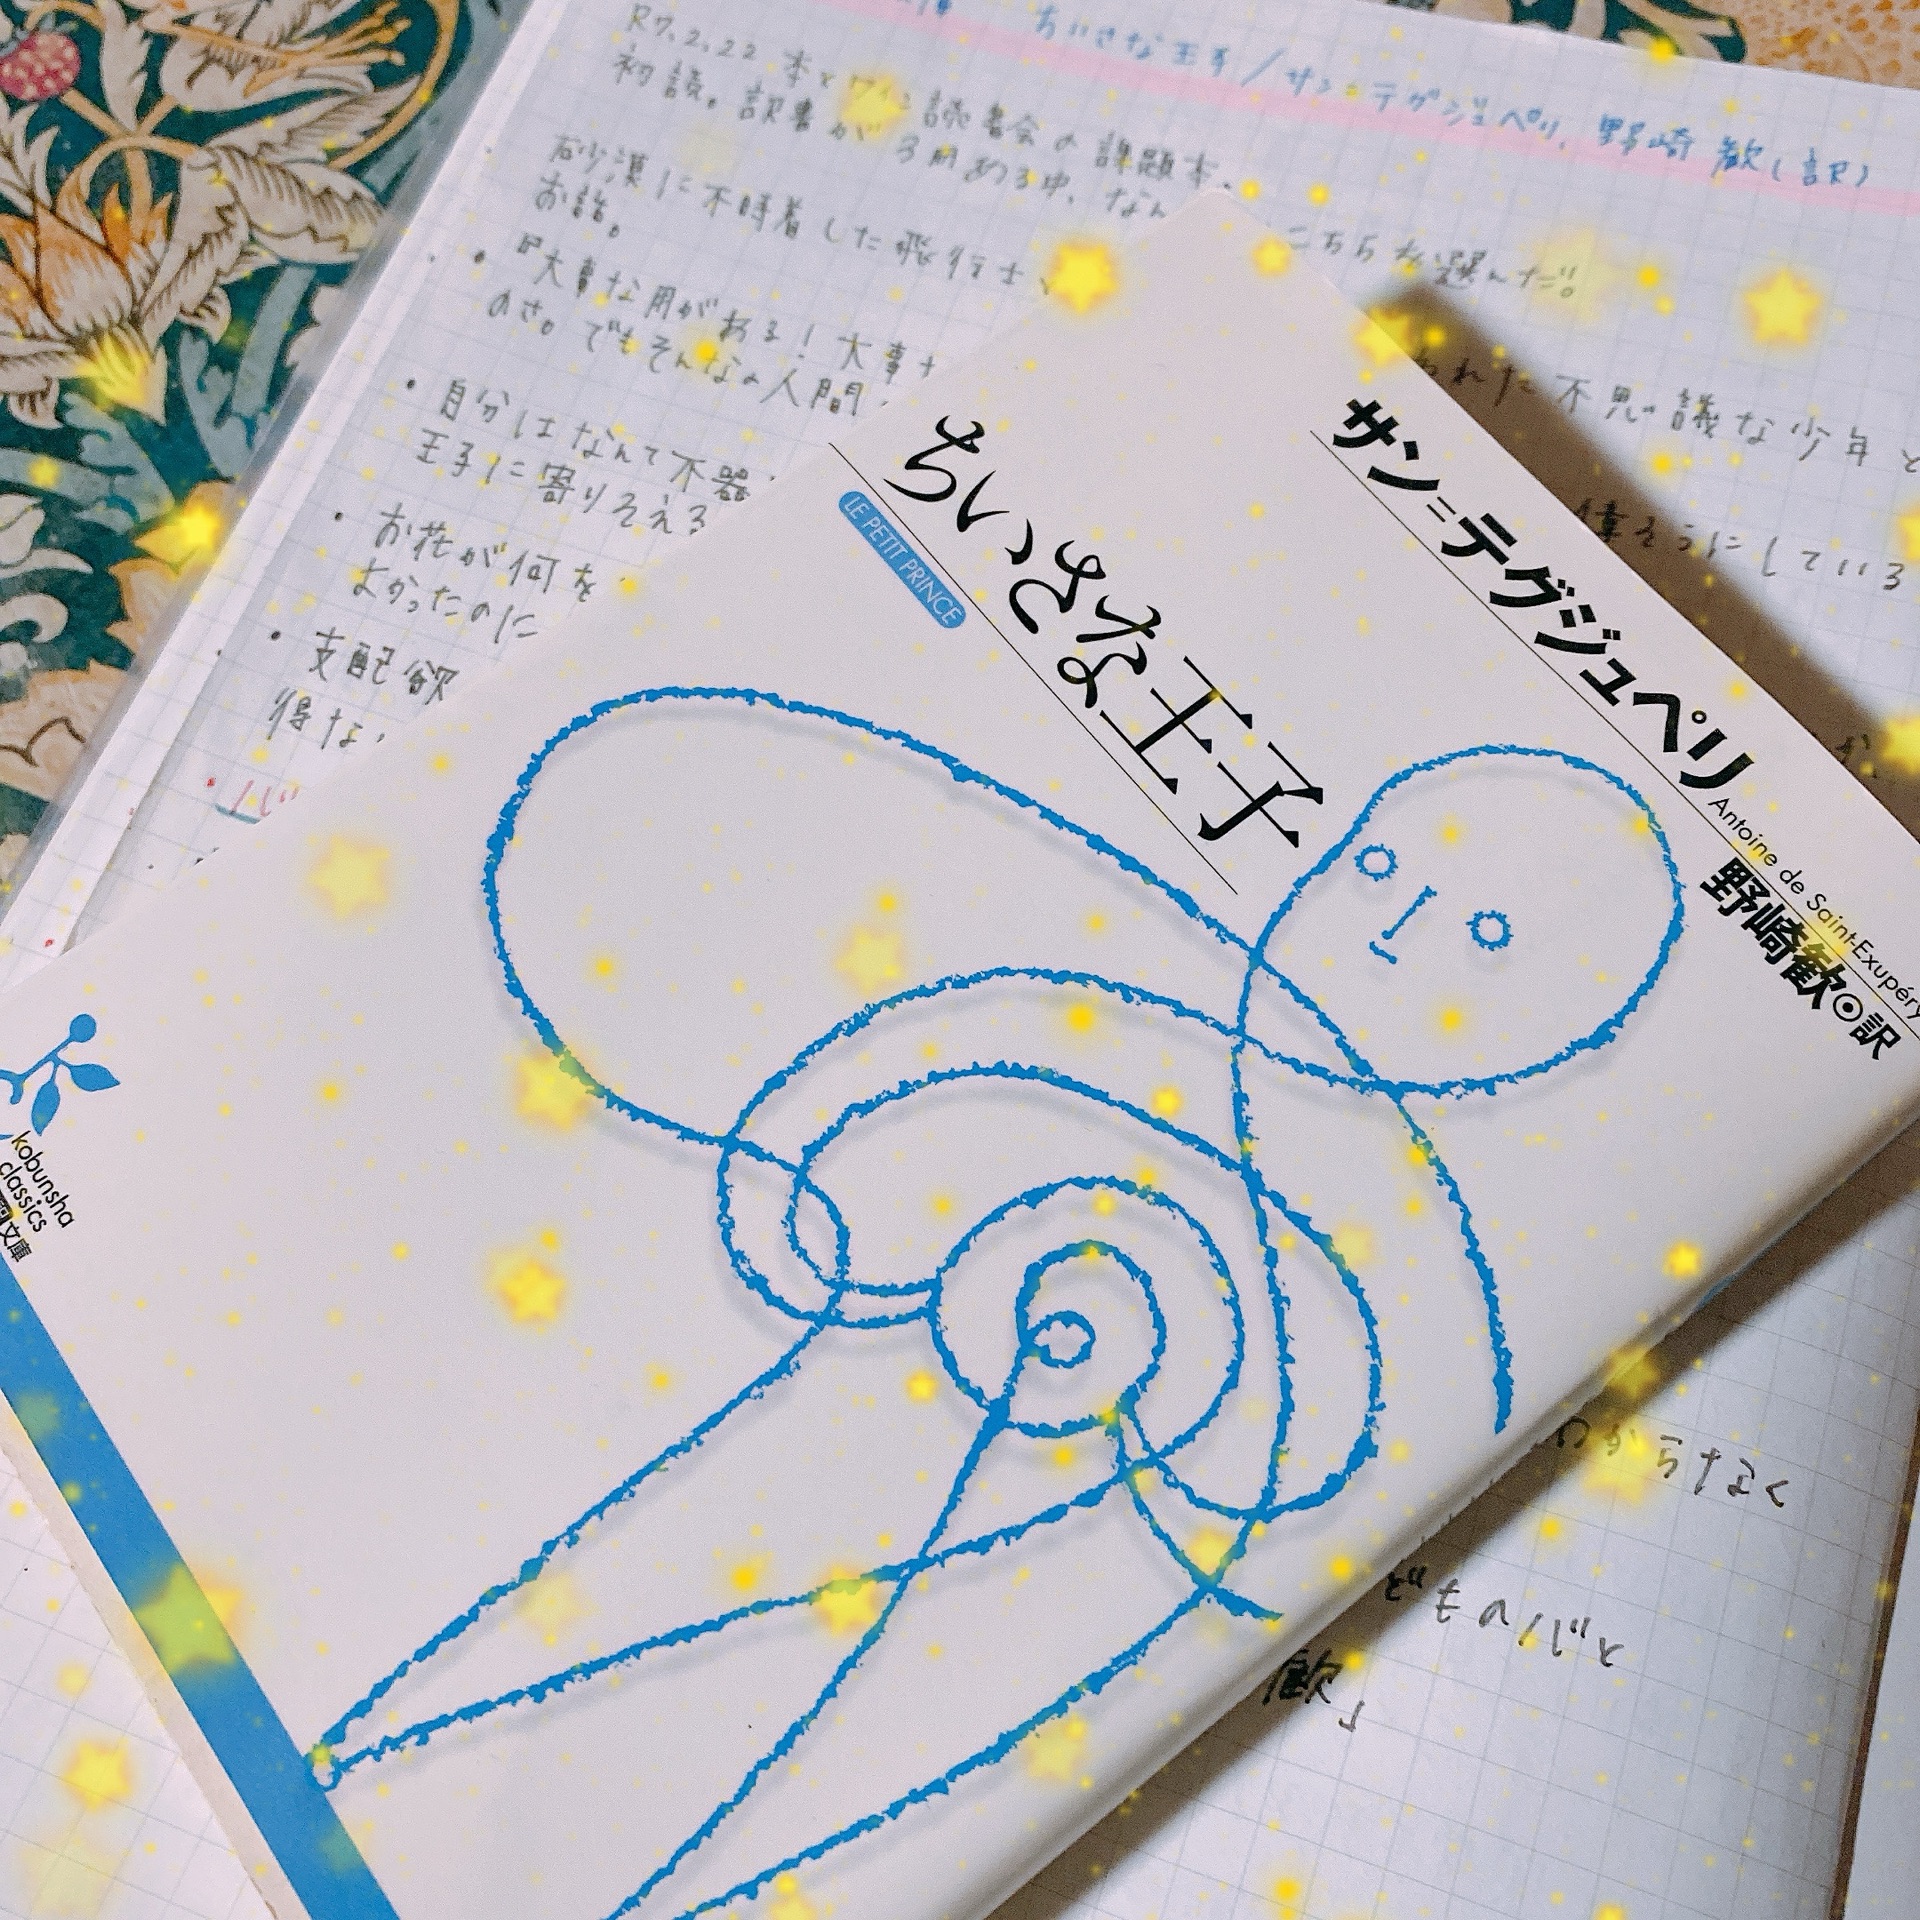 ちいさな王子/サン=テグジュペリ, 野崎 歓(訳)
R7.2.22 本とワイン読書会の課題本。
初読。訳書が3冊ある中、なん こちらを選んだ。
砂漠に不時着した飛行士、 れた不思議な少年と
お話。
・『大事な用がある!大事 偉そうにしている
のさ。でもそんなの人間
・自分はなんて不器
王子に寄りそえる
・お花が何を
よかったのに
・支配欲
得な
わからなく
どものバと
歓」
サン=テグジュペリ
Antoine de Saint-Exupéry
野崎歓◉訳
ちいさな王子
LE PETIT PRINCE
kobunsha
classics
文庫